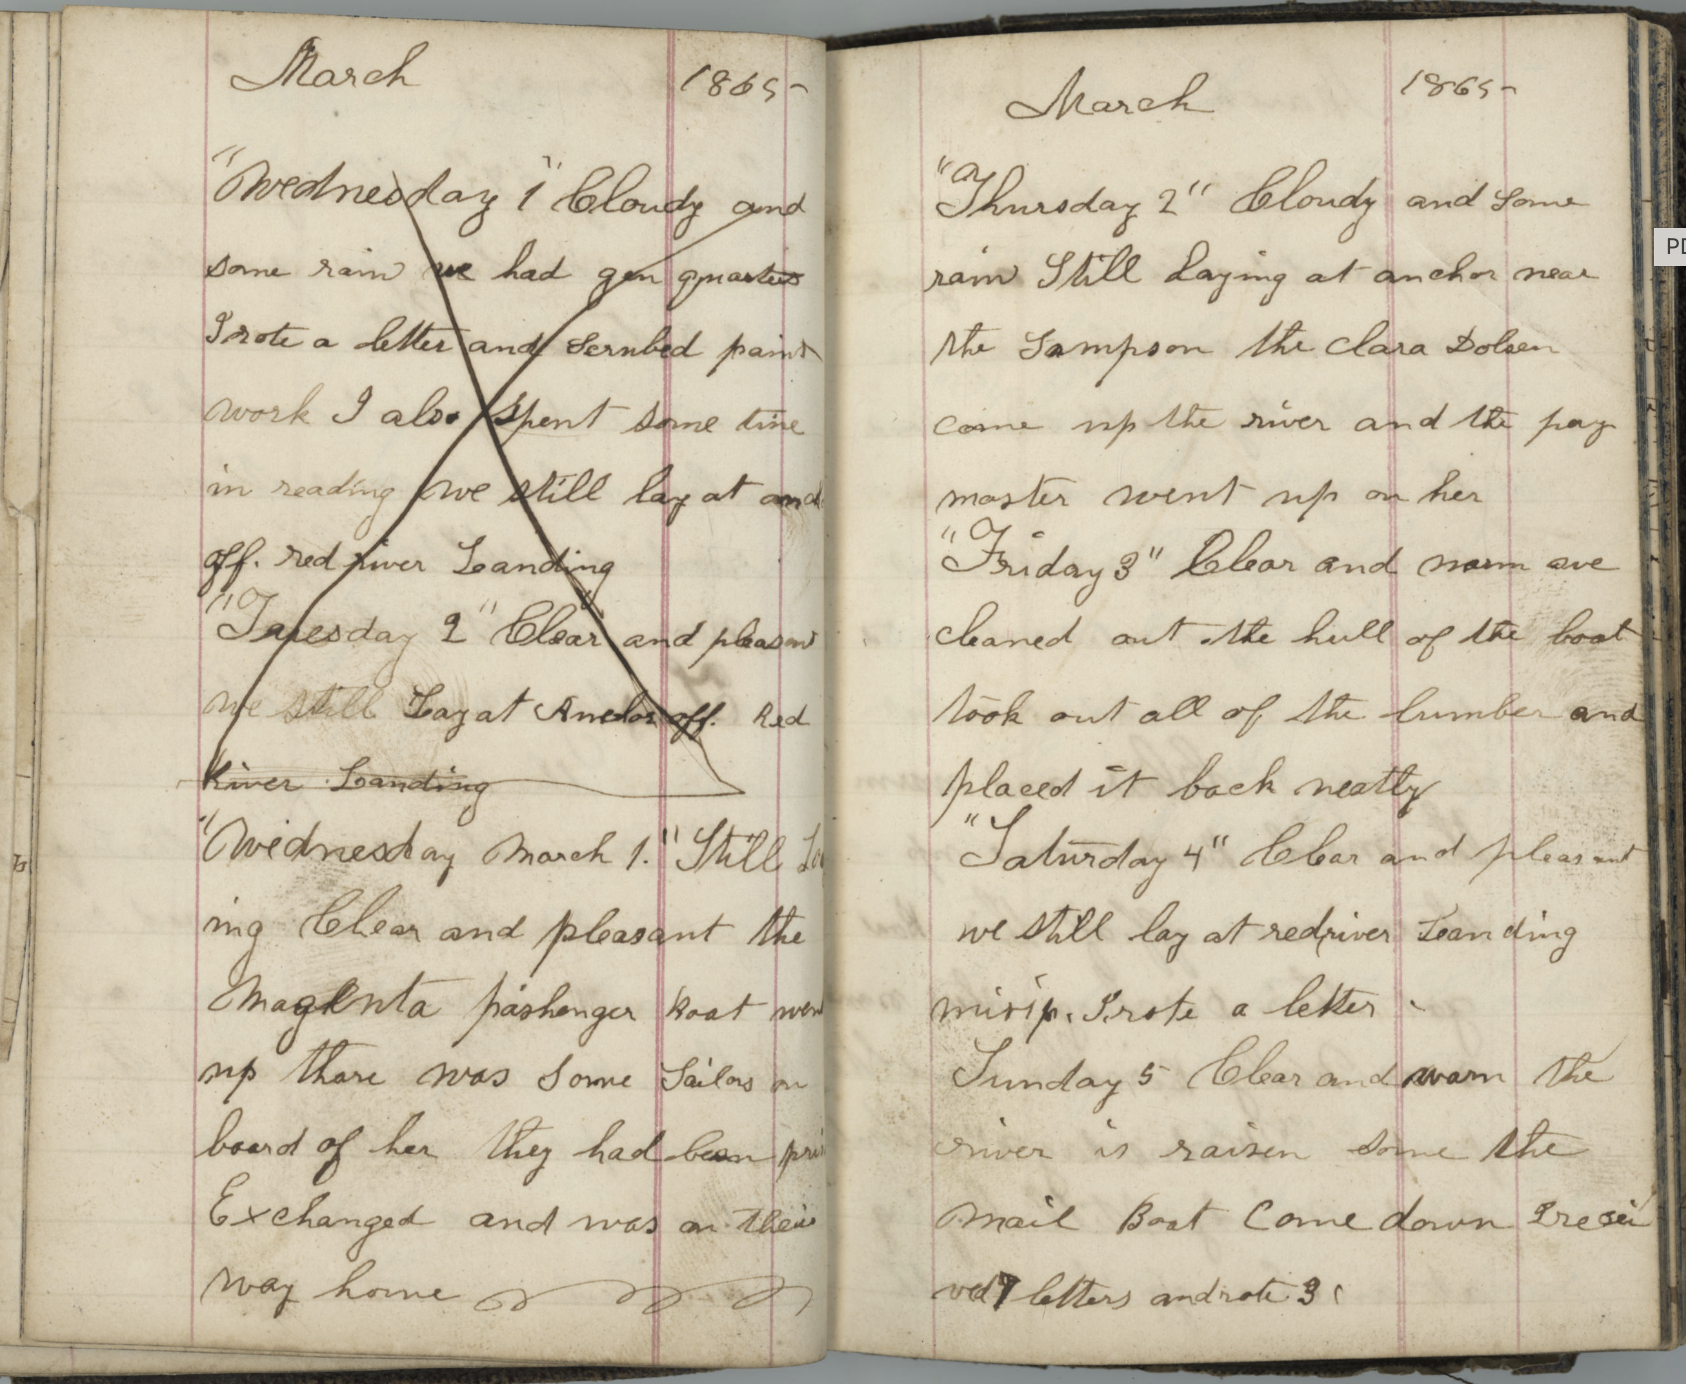 March 1865-
"Wednesday 1" Cloudy and
some rain we had gen qquarters
I rote a letter and Scrubed paint
work I also Spent some time
in reading we still lay at and
off. red river Landing
"Tuesday 2" Clear and pleasant
we still Lay at Anchor off. Red
River Landing
"Wednesday March 1." Still
ing Clear and pleasant the
Magenta pashenger Boat went
up thare was Some Sailors on
board of her they had been
Exchanged and was on their
way home
March 1865-
"Thursday 2" Cloudy and Some
rain Still Laying at anchor near
the Sampson the Clara Dolsen
come up the river and the pay
master went up on her
"Friday 3" Clear and warm we
cleaned out the hull of the boat
took out all of the lumber and
placed it back neatly
"Saturday 4" Clear and pleasant
we still lay at redriver Landing
misip. I rote a letter
Sunday 5 Clear and warm the
river is raisen some the
Mail Boat Come down I resei
ved 7 letters and rote 3
PD